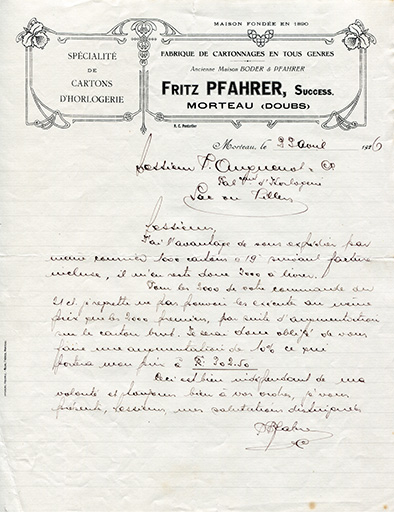 MAISON FONDÉE EN 1890
SPÉCIALITÉ
DE
CARTONS
D'HORLOGERIE
FABRIQUE DE CARTONNAGES EN TOUS GENRES
Ancienne Maison BODER & PFAHRER
FRITZ PFAHRER, SUCCESS.
MORTEAU (DOUBS)
R. C. Pontarlier
Morteau, le 22 avril 1926
Messieurs
d'Horlogerie
Messieurs,
J'ai l'avantage de vous expédier par
même courrier 1000 cartons suivant facture
incluse, il m'en reste donc 2000 à livrer.
Pour les 2000 de votre commande du
21 ct. je regrette ne pas pouvoir les exécuter au même
prix que les 2000 premiers, par suite d'augmentation
sur le carton brut. Je serai donc obligé de vous
faire une augmentation de 10% ce qui
portera mon prix à Fr 202.50
Ceci est bien indépendant de ma
volonté et toujours bien à vos ordres, je vous
présente, Messieurs mes salutations distinguées
Pfahrer